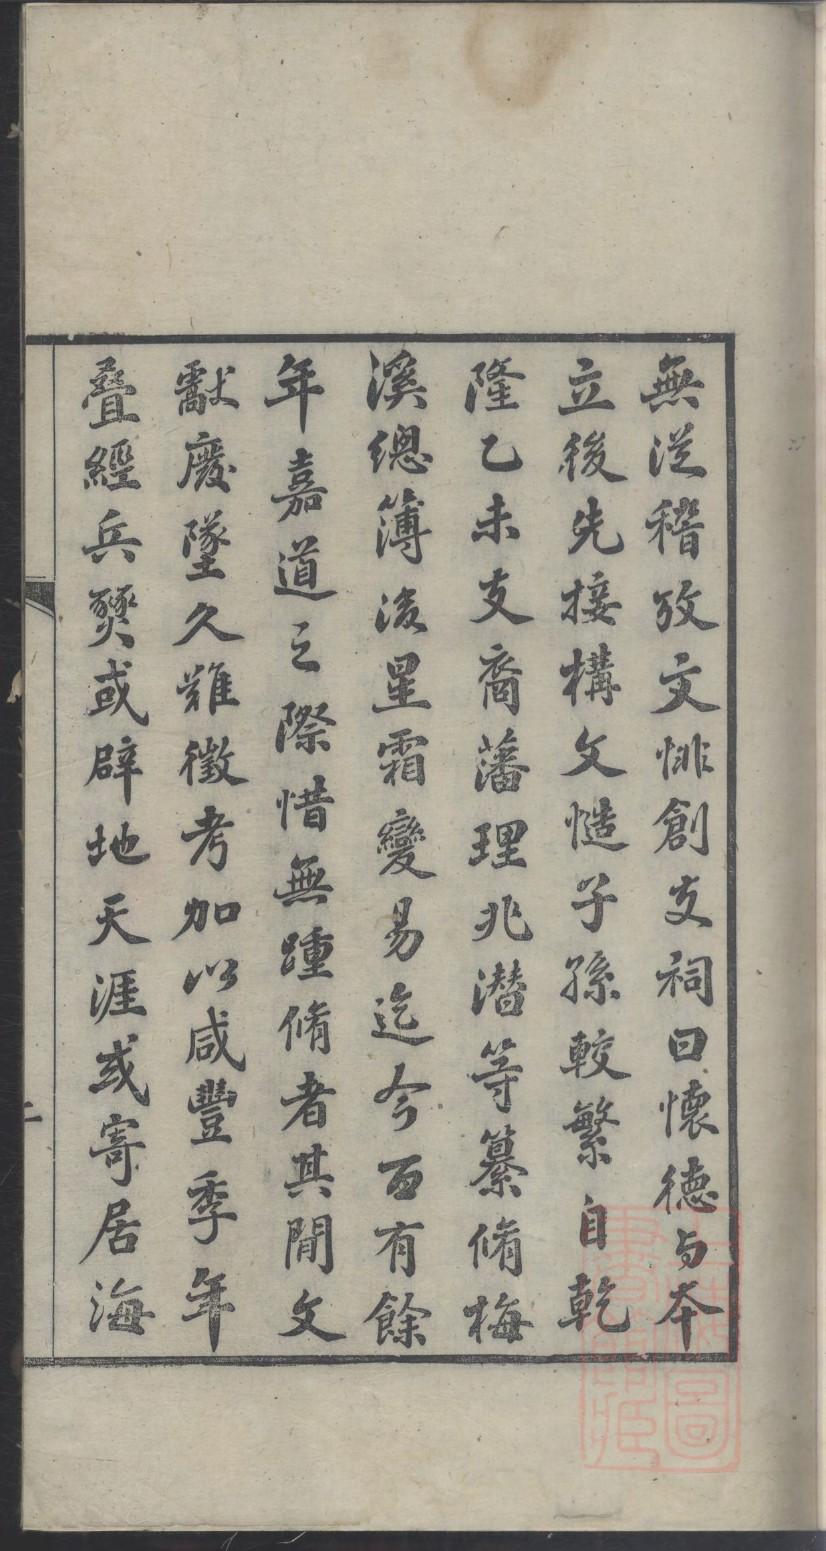 無從稽攷文悱創支祠曰懷德与本
立後先接構文慥子孫較繁自乾
隆乙未支裔藩理兆潛等纂脩梅
溪總簿後星霜變易迄今百有餘
年嘉道之際惜無踵脩者其間文
獻廢墜久難徵考加以咸豐季年
疊經兵燹或辟地天涯或寄居海
二